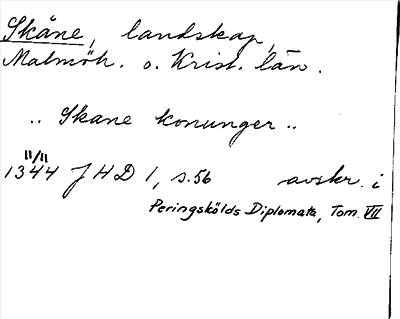 Skåne, landskap,
Malmöh. o. Krist. län.
.. Skane konunger ..
11/11
1344 JHD 1, s.56 avskr. i
Peringskölds Diplomata, Tom. VII